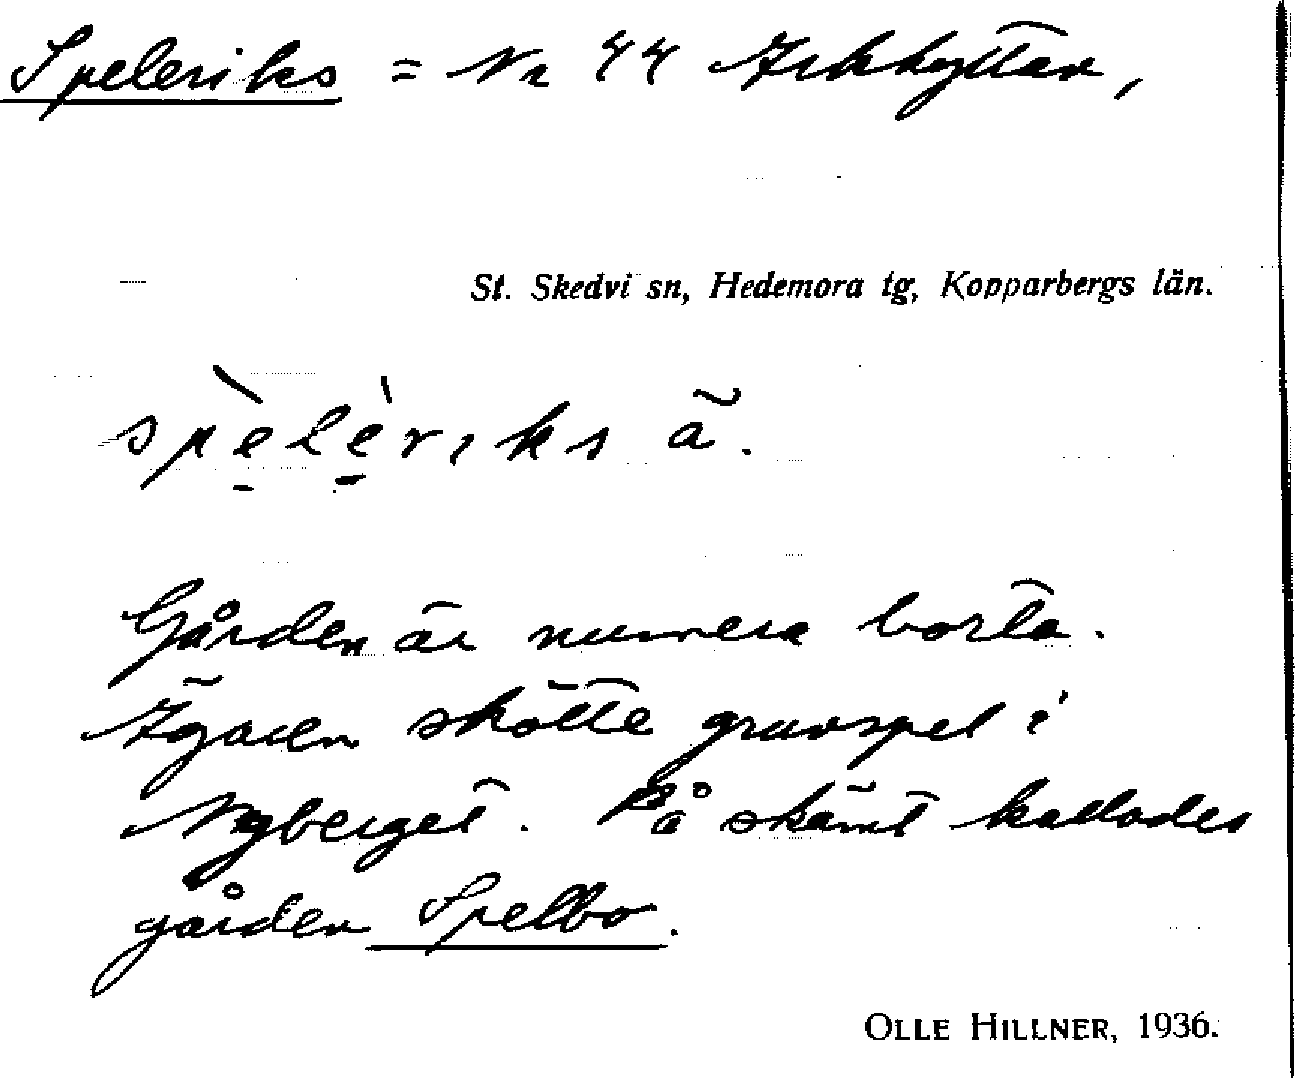 Speleriks = Nr 44 Arkhyttan,
St. Skedvi sn, Hedemora tg, Kopparbergs län.
spè̠lè̠rıks ã.
Gården är numera borta.
Ägaren skötte gruvspel i
Nyberget. På skämt kallades
gården Spelbo.
OLLE HILLNER, 1936.